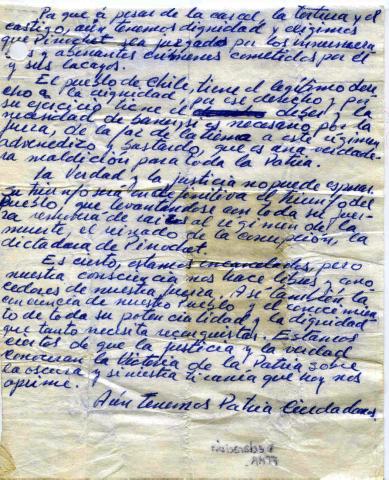 Pa que á pesar de la carcel la tortura y el
castigo, aún tenemos dignidad y exigimos
que Pinochet sea juzgado por los innumera
les y aberrantes crimenes cometidos por él
y sus lacayos.
El pueblo de Chile, tiene el legítimo dere
cho a la dignidad, por ese derecho y por
su ejercicio tiene el deber y la
necesidad de barrer, si es necesario por la
fuerza, de la faz de la tierra a este régimen
advenedizo y bastardo, que es una verdade
ra maldición para toda la Patria.
La verdad y la justicia no puede esperar
su triunfo
Pueblo, que levantandose con toda su fuer
za removera de raíces al régimen de la
muerte, el reinado de la corrupción, la
dictadura de Pinochet.
Es cierto, estamos encarcelados, pero
nuestra consciencia nos hace libres y cono
cedores de nuestra fuerza. Así tambien la
conciencia de nuestro Pueblo y el conocimien
to de toda su potencialidad, la dignidad
que tanto necesita reconquistar. Estamos
ciertos de que la justicia y la verdad
conoceran la Victoria de la Patria sobre
la oscura y siniestra tirania que hoy nos
oprime.
Aún tenemos Patria Ciudadanos.
Declaración